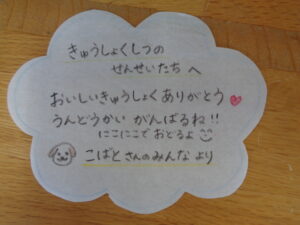 きゅうしょくしつの
せんせいたちへ
おいしいきゅうしょくありがとう
うんどうかいがんばるね!!
にこにこでおどるよ
こばとさんのみんなより